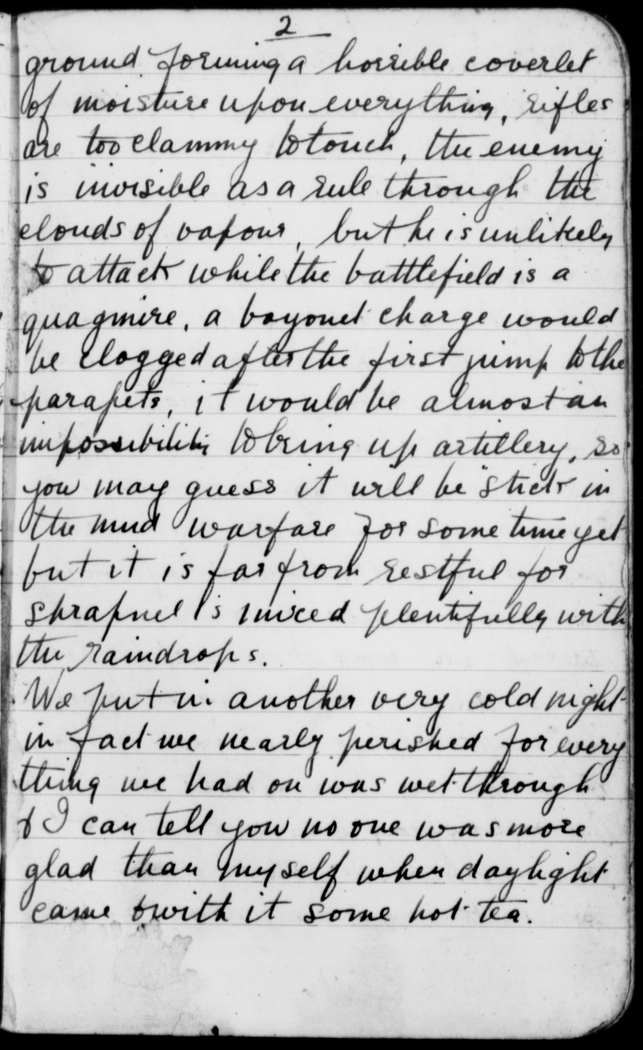 2
ground forming a horrible coverlet
of moisture upon everything, rifles
are too clammy to touch, the enemy
is invisible as a rule through the
clouds of vapour, but he is unlikely
to attack while the battlefield is a
quagmire, a bayonet charge would
be clogged after the first jump to the
parapets, it would be almost an
impossibility to bring up artillery, so
you may guess it will be "stick in
the mud warfare for some time yet
but it is far from restful for
shrapnel is mixed plentifully with
the raindrops.
We put in another very cold night
in fact we nearly perished for every
thing we had on was wet through
& I can tell you no one was more
glad than myself when daylight
came & with it some hot tea.